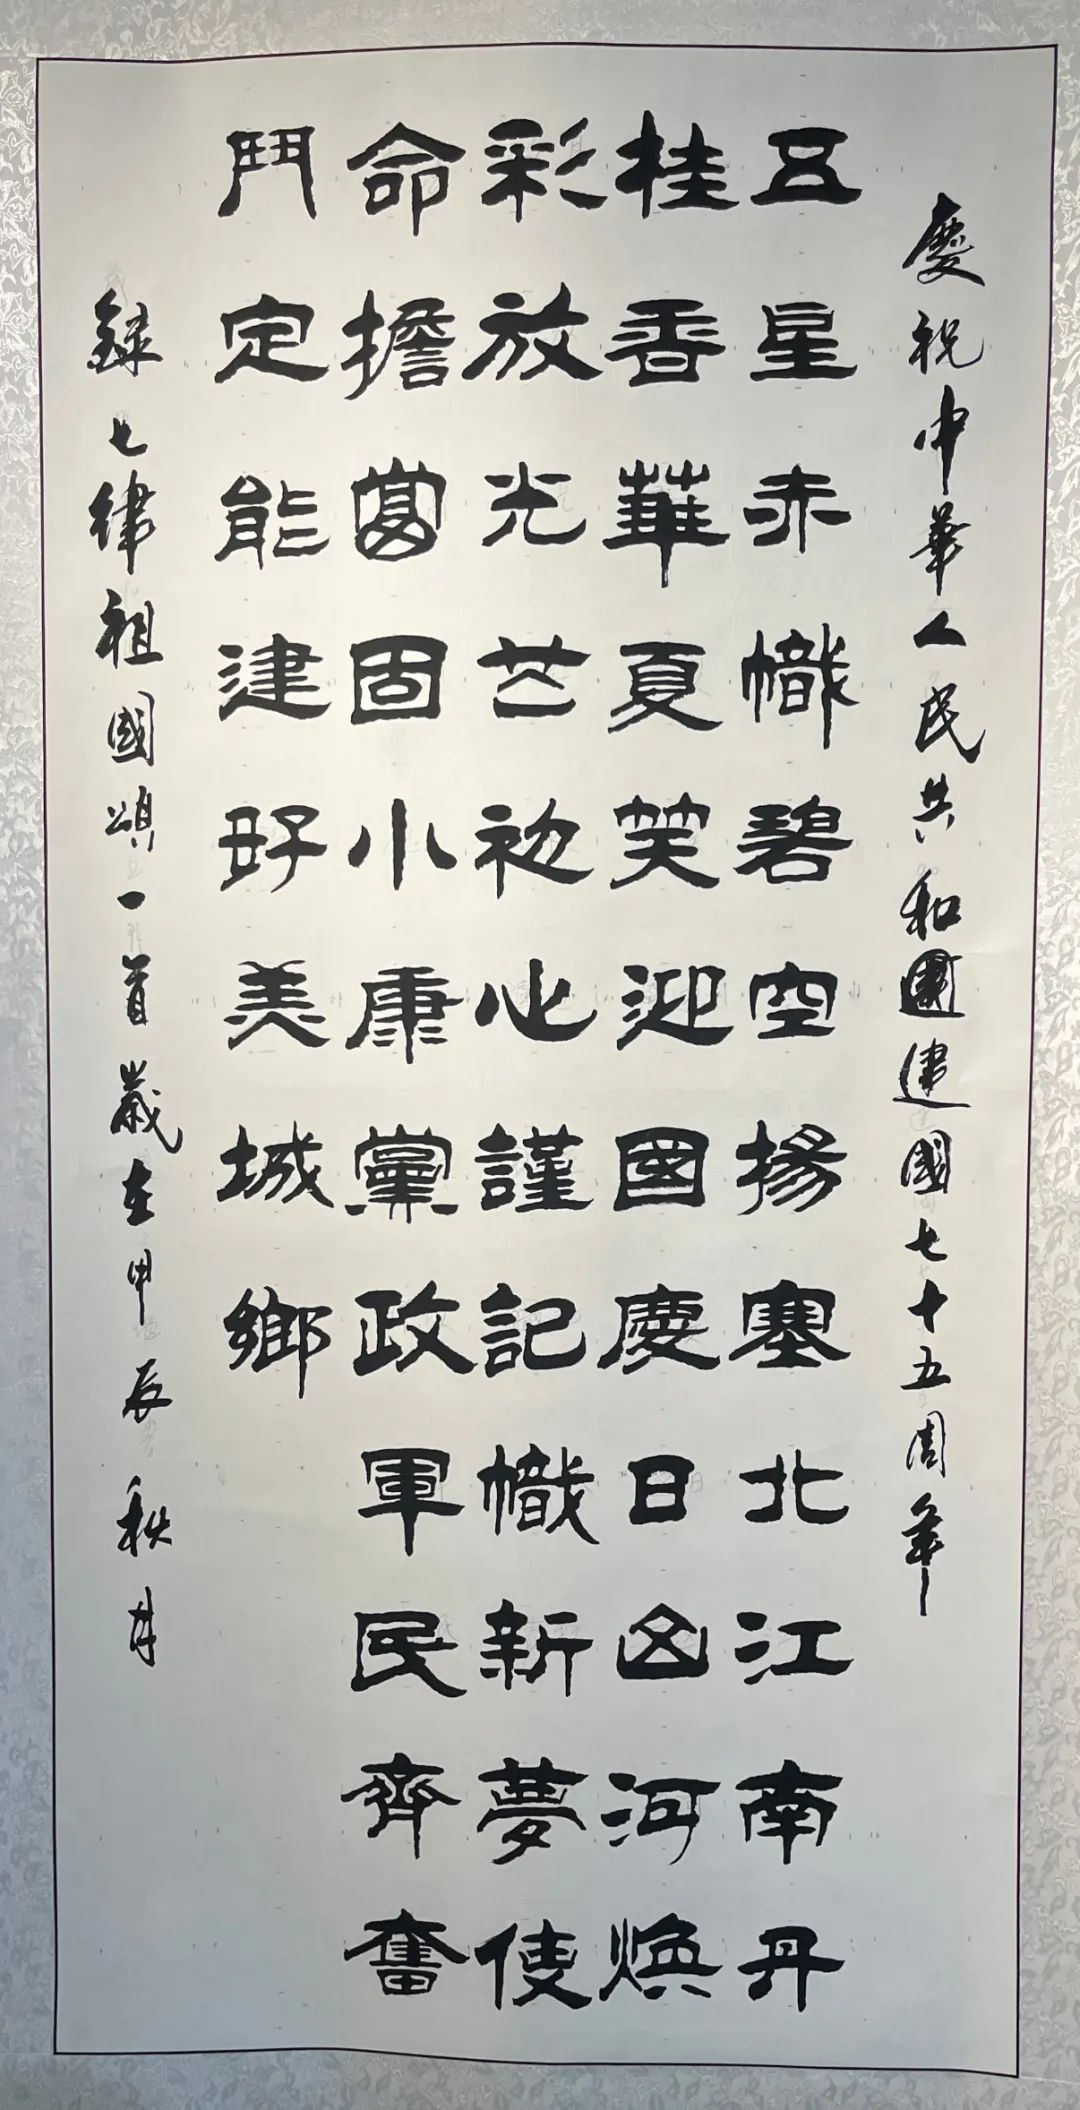 慶祝中華人民共和國建國七十五周年
五星赤幟碧空揚塞北江南丹
桂香華夏笑迎國慶日山河煥
彩放光芒初心謹記幟新夢使
命擔當固小康黨政軍民齊奮
鬥定能建好美城鄉
錄七律祖國頌一首歲在甲辰秋月